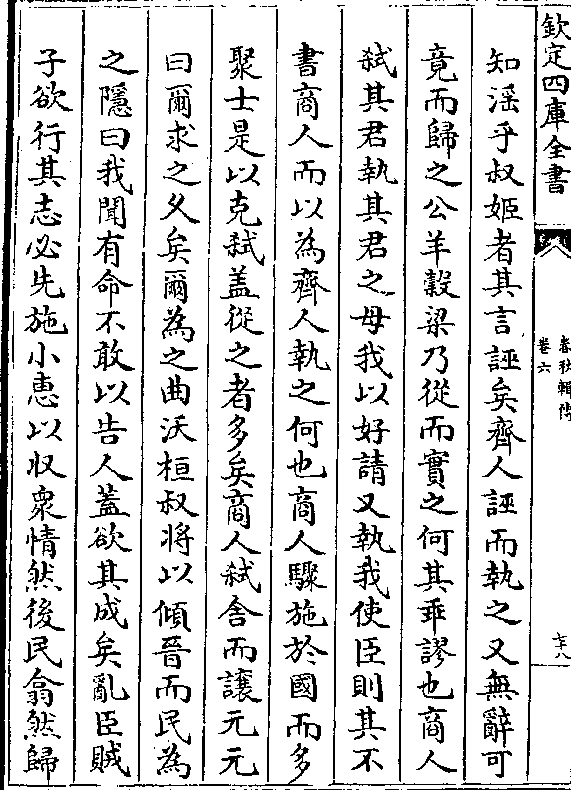 欽定四庫全書
春秋輯傳
卷六
七十八
知淫乎叔姬者其言誣矣齊人誣而執之又無辭可
竟而歸之公羊榖梁乃從而實之何其乖謬也商人
弑其君執其君之母我以好請又執我使臣則其不
書商人而以為齊人執之何也商人驟施於國而多
聚士是以克弑盖從之者多矣商人弑舍而讓元元
曰爾求之乆矣爾為之曲沃桓叔將以傾晉而民為
之隱曰我聞有命不敢以告人蓋欲其成矣亂臣賊
子欲行其志必先施小恵以收衆情然後民翕然歸